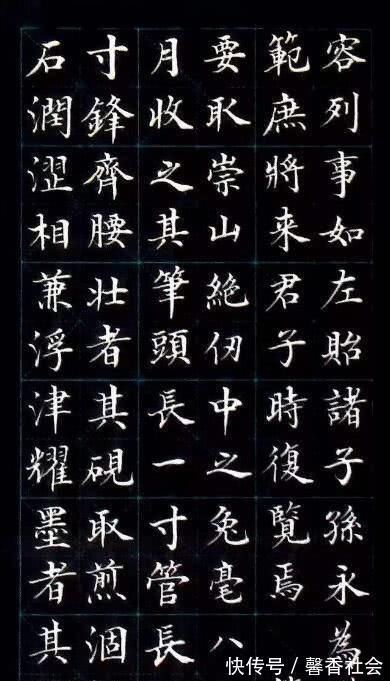 容列事如左貽諸子孫永為
範庶將来君子時復覽焉
要取崇山絕仞中之兔毫八
月收之其筆頭長一寸管長
寸鋒齊腰壯者其硯取煎涸
石潤澀相兼浮津耀墨者其
快传号／馨香社会